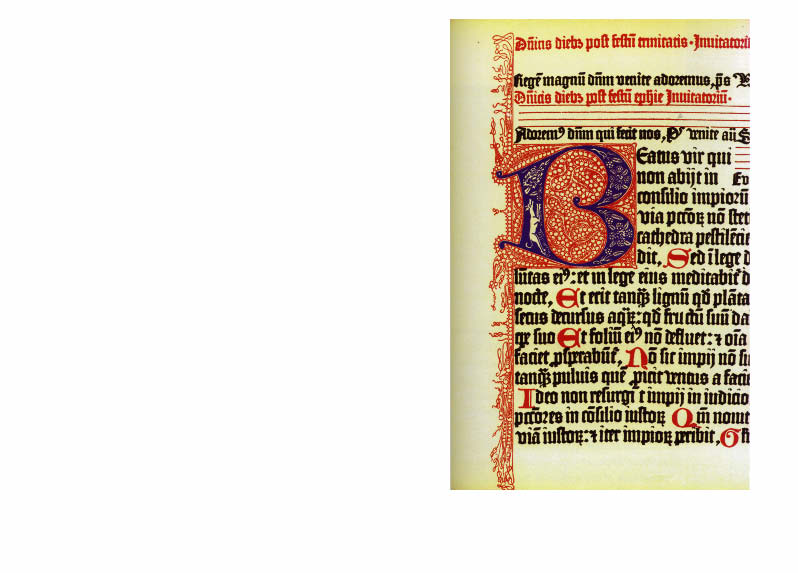 Dn̄icis diebꝫ post festū trinitatis · Inuitatoriū
Regē magnū dn̄m venite adoremus, p̄s V
Dn̄icis diebꝫ post festū ephīe Inuitatoriū ·
Adoremꝰ dn̄m qui fecit nos, Ps̄ venite aū S
Beatus vir qui
non abijt in Ev
consilio impiorū
via pccōꝝ nō stet
cathedra pestilēcie
dit, Sed ī lege d
lūtas eiꝰ: et in lege eius meditabit̄ d
nocte, Et erit tanqꝫ lignū qd̄ plāta
secus decursus aqꝝ: qd̄ fructū suū da
tpe suo Et foliū eiꝰ nō defluet: ⁊ oīa
faciet ꝓsperabūt̄, Nō sic impij nō si
tanqꝫ puluis quē ꝓicit ventus a facie
Ideo non resurgūt impij in iudicio
pccōres in cōsilio iustoꝝ Qm̄ nouit
viā iustoꝝ: ⁊ iter impioꝝ peribit, G